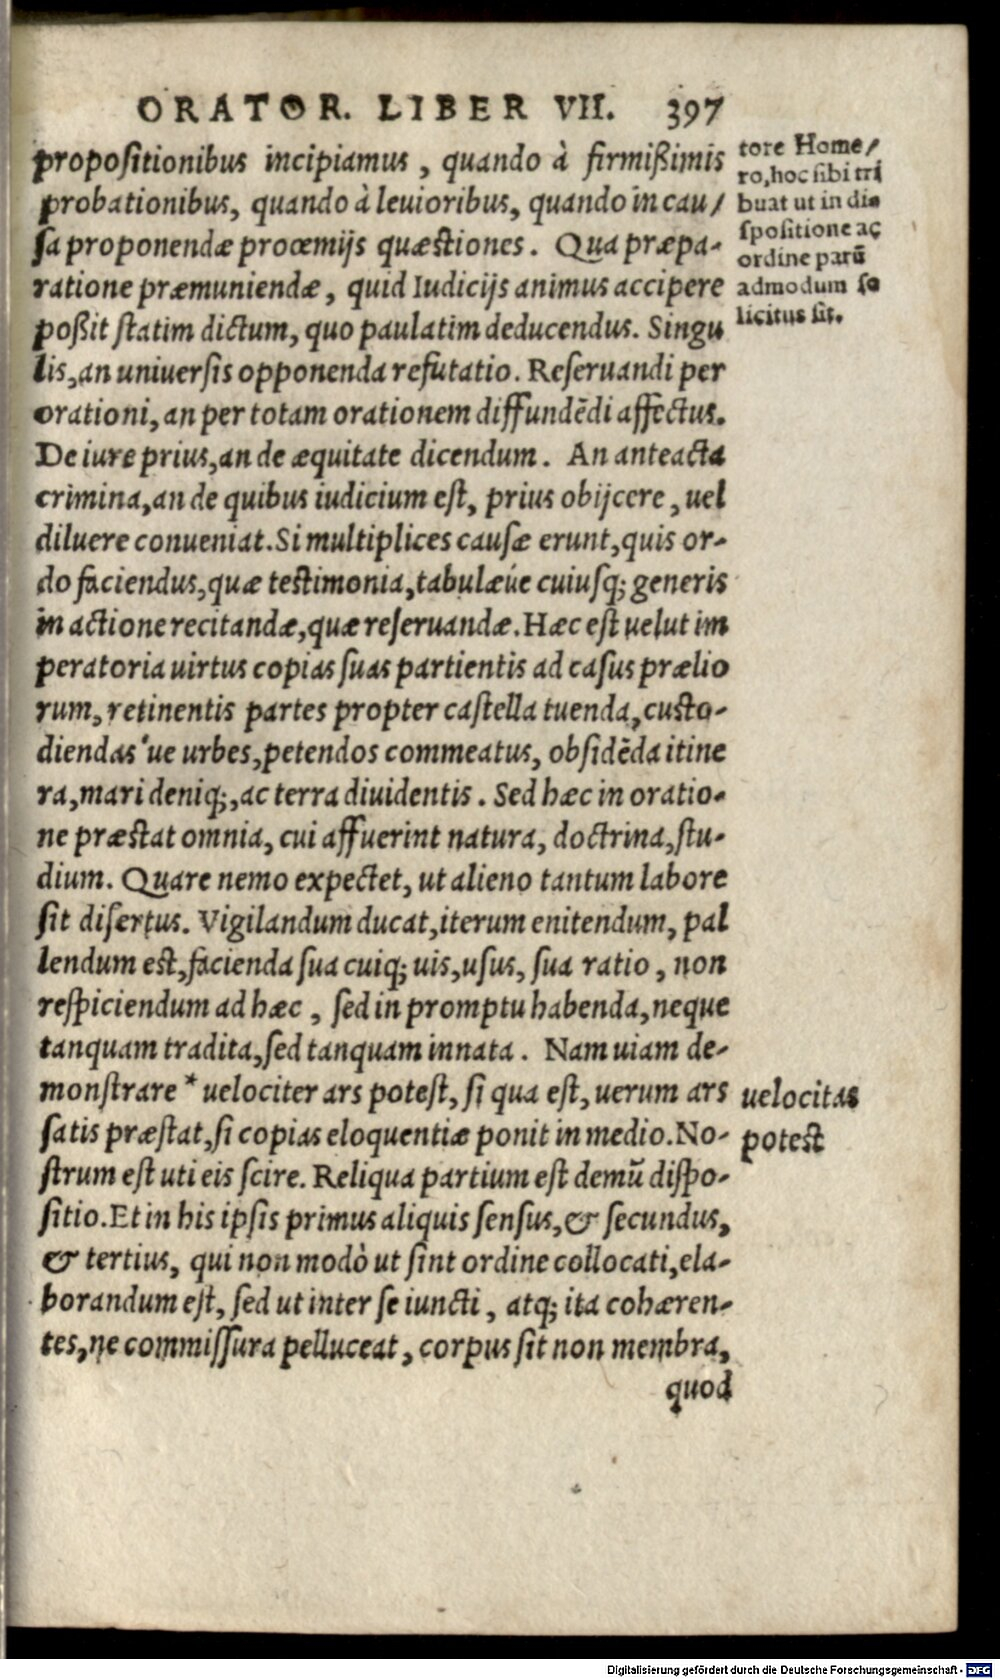 ORATOR. LIBER VII. 397
propositionibus incipiamus, quando à firmißimis
probationibus, quando à leuioribus, quando in cau/
sa proponendæ proœmijs quæstiones. Qua præpa-
ratione præmuniendæ, quid Iudicijs animus accipere
poßit statim dictum, quo paulatim deducendus. Singu
lis, an uniuersis opponenda refutatio. Reseruandi per
orationi, an per totam orationem diffundēdi affectus.
De iure prius, an de æquitate dicendum. An anteacta
crimina, an de quibus iudicium est, prius obijcere, uel
diluere conueniat. Si multiplices causæ erunt, quis or-
do faciendus, quæ testimonia, tabulæúe cuiusq; generis
in actione recitandæ, quæ reseruandæ. Hæc est uelut im
peratoria uirtus copias suas partientis ad casus prælio
rum, retinentis partes propter castella tuenda, custo-
diendas'ue urbes, petendos commeatus, obsidēda itine
ra, mari deniq;, ac terra diuidentis. Sed hæc in oratio-
ne præstat omnia, cui affuerint natura, doctrina, stu-
dium. Quare nemo expectet, ut alieno tantum labore
sit disertus. Vigilandum ducat, iterum enitendum, pal
lendum est, facienda sua cuiq; uis, usus, sua ratio, non
respiciendum ad hæc, sed in promptu habenda, neque
tanquam tradita, sed tanquam innata. Nam uiam de-
monstrare * uelociter ars potest, si qua est, uerum ars
satis præstat, si copias eloquentiæ ponit in medio. No-
strum est uti eis scire. Reliqua partium est demū dispo-
sitio. Et in his ipsis primus aliquis sensus, & secundus,
& tertius, qui non modò ut sint ordine collocati, ela-
borandum est, sed ut inter se iuncti, atq; ita cohæren-
tes, ne commissura pelluceat, corpus sit non membra,
quod
tore Home/
ro, hoc sibi tri
buat ut in di
spositione ac
ordine parū
admodum so
licitus sit.
uelocitas
potest
Digitalisierung gefördert durch die Deutsche Forschungsgemeinschaft - DFG